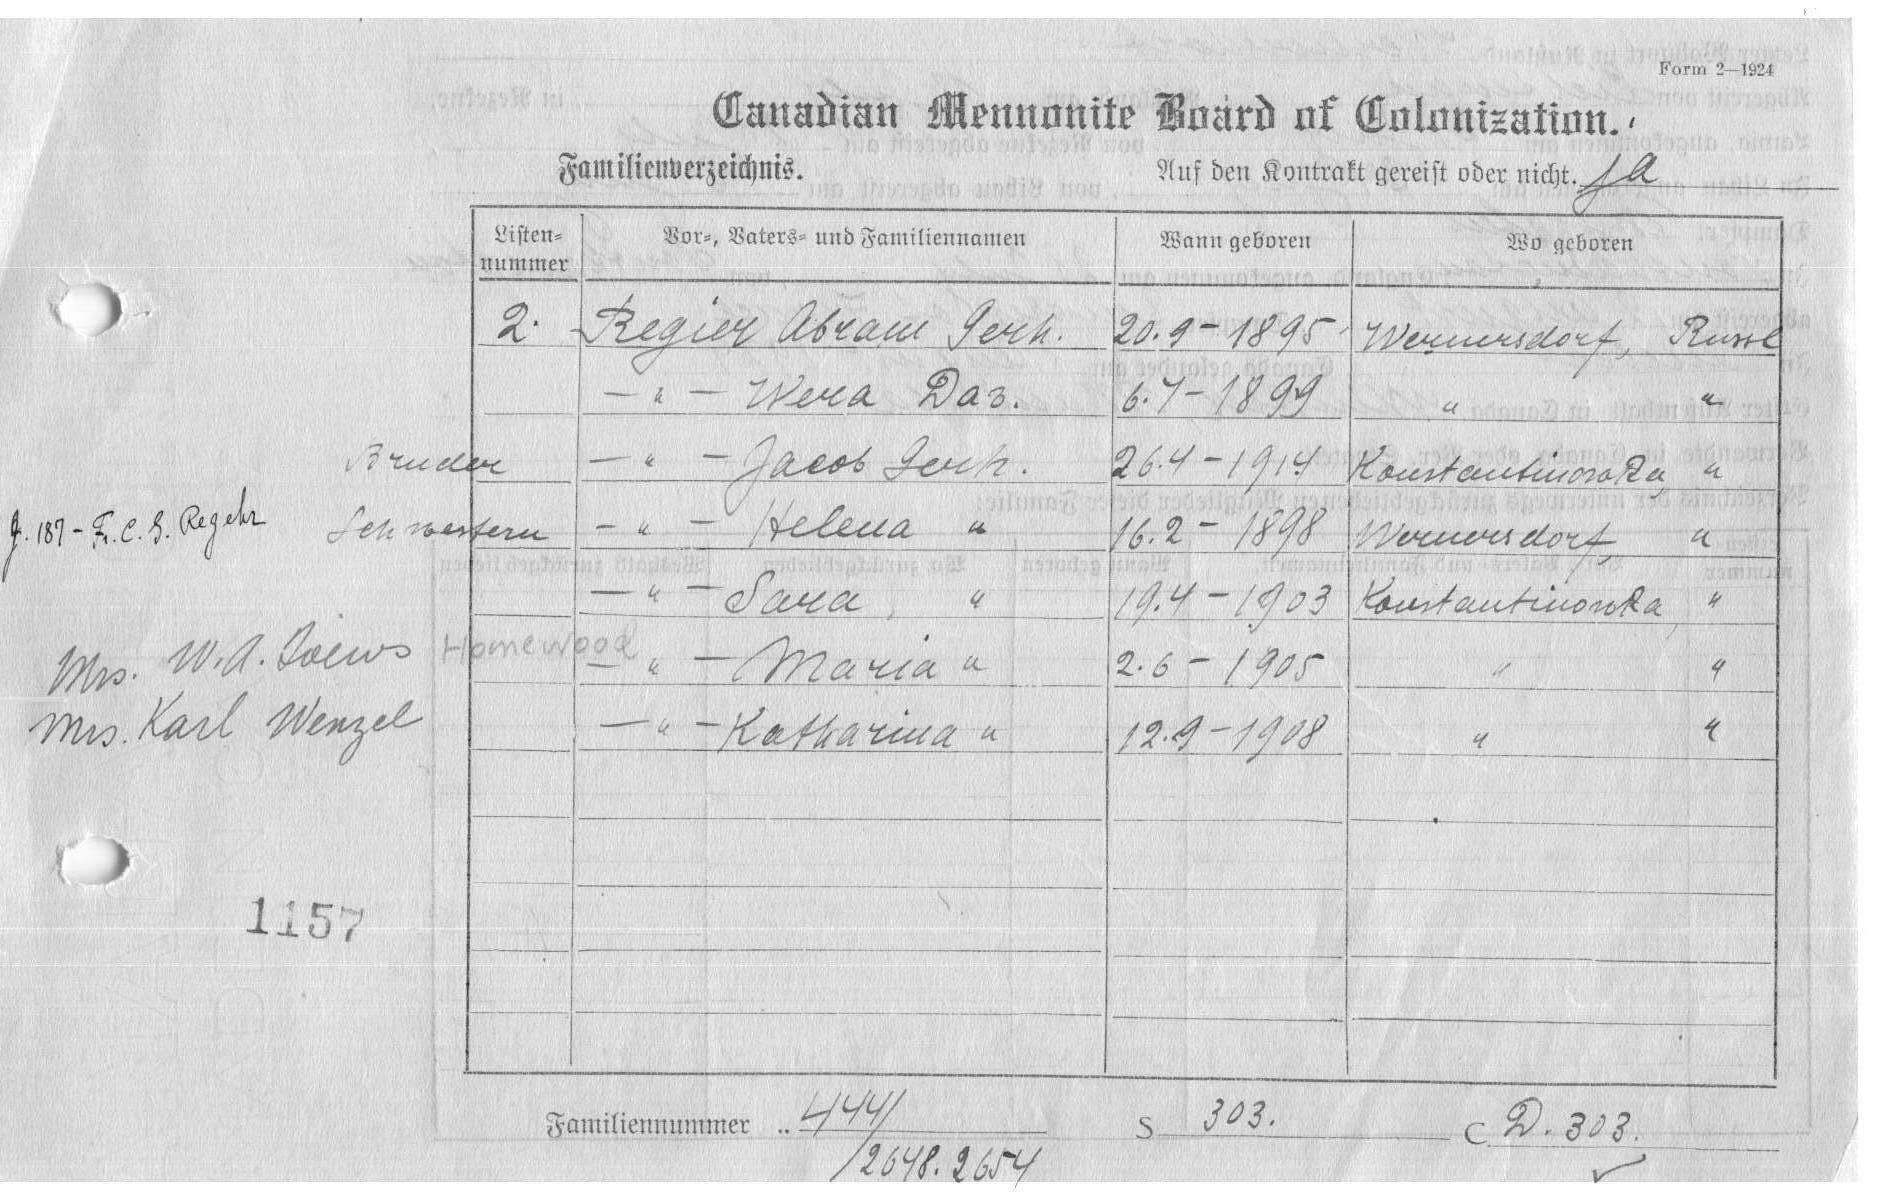 Form 2—1924
Canadian Mennonite Board of Colonization.
Familienverzeichnis. Auf den Kontrakt gereist oder nicht. ja
Listen-nummer Vor-, Vaters- und Familiennamen Wann geboren Wo geboren
2. Regier Abram Gerh. 20.9-1895 Wernersdorf, Russl
— " — Wera Dav. 6.7-1899 " "
Bruder — " — Jacob Gerh. 26.4-1914 Konstantinowka, "
J. 187 - Fr. C. G. Regehr Schwestern — " — Helena " 16.2-1898 Wernersdorf, "
— " — Sara, " 19.4-1903 Konstantinowka, "
Mrs. W.A. Loews Homewood — " — Maria " 2.6-1905 " "
Mrs. Karl Wenzel — " — Katharina " 12.9-1908 " "
1157
Familiennummer .. 444/ S 303. C D. 303.
/2648.2654